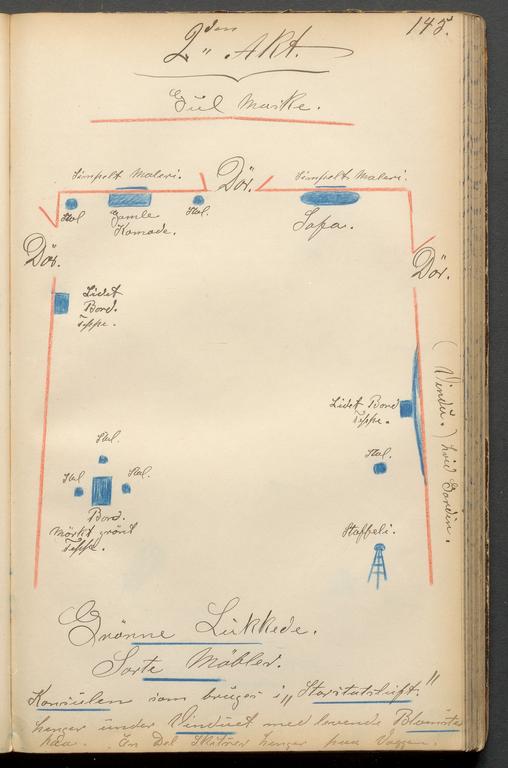 145.
2den Akt.
Gul Maske.
Simpelt Maleri.
Dör.
Simpelt Maleri.
Stol
Gamle
Komode.
Stol.
Sofa.
Dör.
Dör.
Lidet
Bord.
Teppe.
(Vindu.) hvid Gardin.
Lidet Bord
Teppe.
Stol.
Stol.
Stol.
Stol.
Bord.
Mörkt grönt
Teppe.
Staffeli.
Grönne Lukkede.
Sorte Möbler.
Konsulen som bruges i „Storstadsluft."
hænger under Vinduet med levende Blomster
. En Del Skitser hænger paa Væggen.